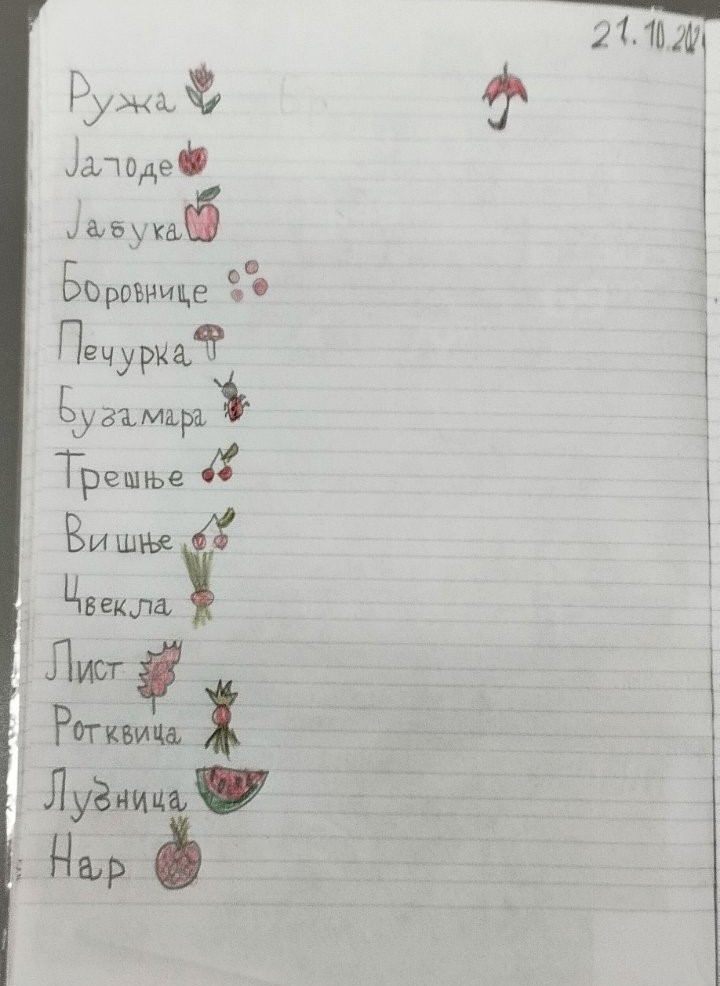 21.10.202
Ружа
Јагоде
Јабука
Боровнице
Печурка
Бузамара
Трешње
Вишње
Цвекла
Лист
Ротквица
Лубница
Нар